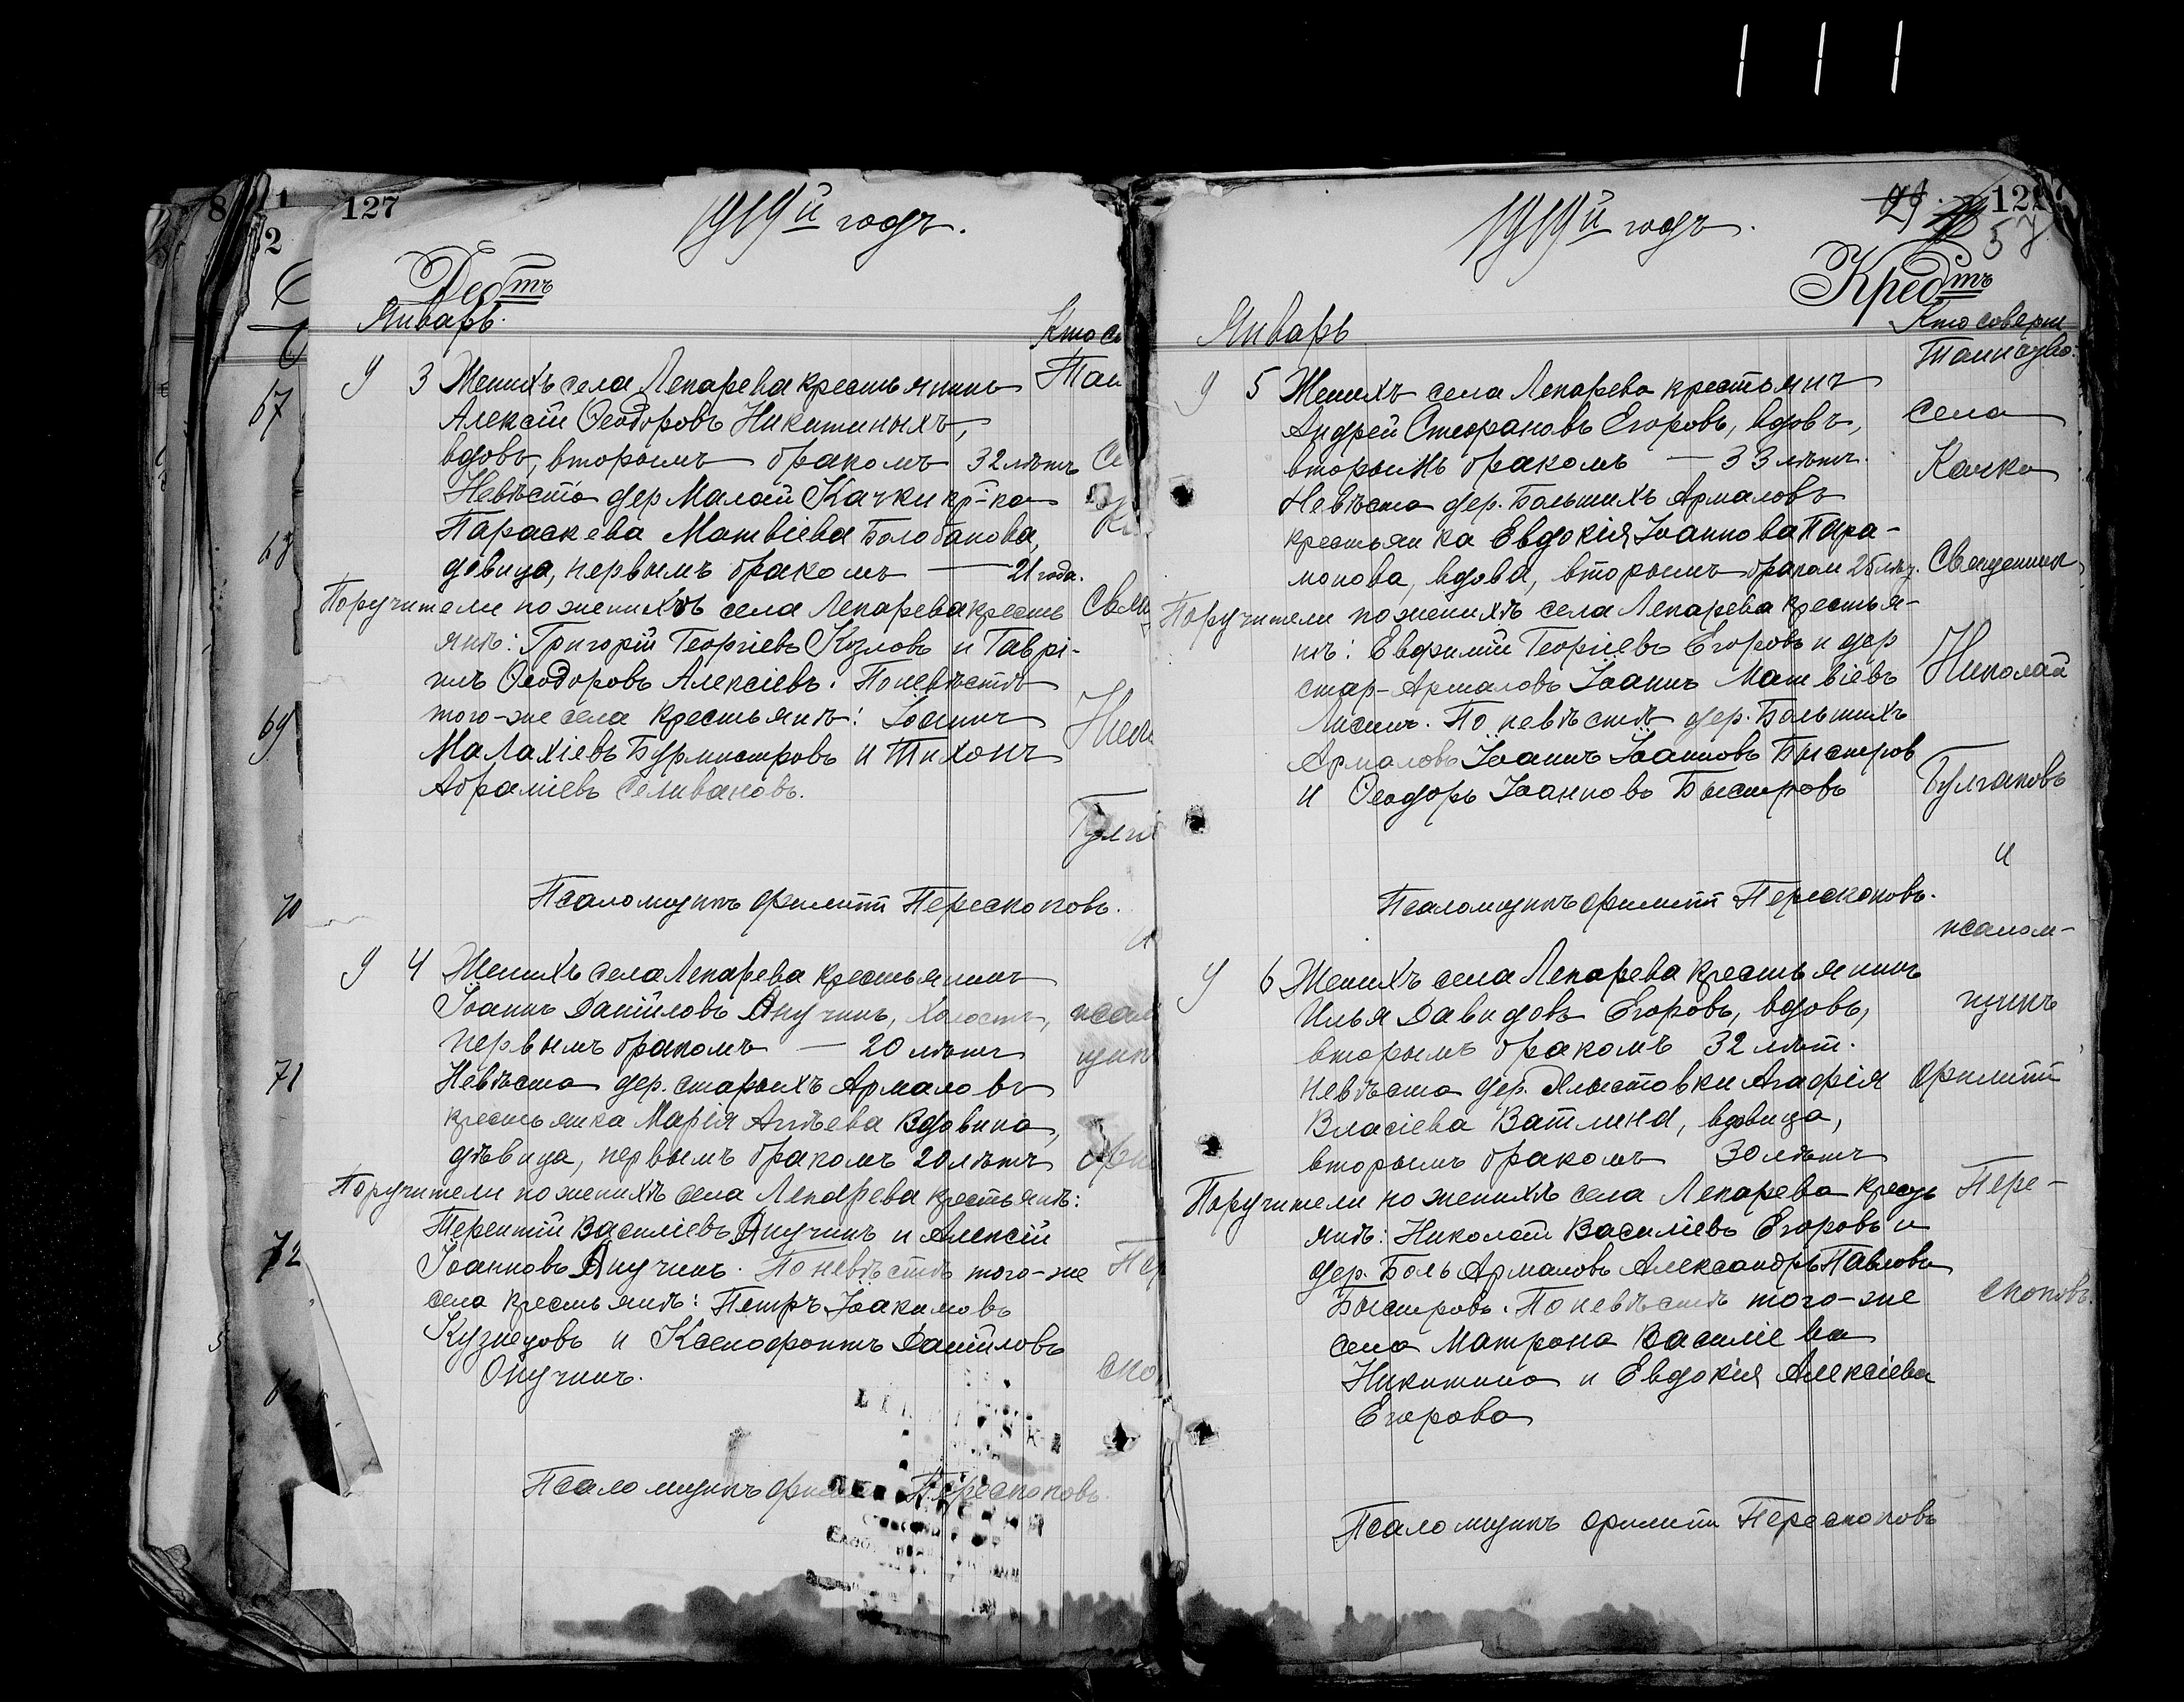 127
1919й годъ.
Дебтъ
Январь.
Кто со
Таи
9 3 Женихъ села Лепарева крестьянинъ
Алексiй Ѳеодоровъ Никитиныхъ,
вдовъ, вторымъ бракомъ 32 лѣтъ
Невѣста дер Малой Качки кр-ка
Параскева Матвiева Болобанова,
дѣвица, первымъ бракомъ — 21 года.
Поручители по женихѣ села Лепарева кресть
янѣ: Григорiй Георгiевъ Козловъ и Гаврi-
илъ Ѳеодоровъ Алексiевъ. По невѣстѣ
того-же села крестьянѣ: Iоаннъ
Малахiевъ Бурмистровъ и Тихонъ
Абрамiевъ Селивановъ.
Псаломщикъ Филиппъ Перескоковъ.
9 4 Женихъ села Лепарева крестьянинъ
Iоаннъ Данiиловъ Анучинъ, холостъ,
первымъ бракомъ — 20 лѣтъ
Невѣста дер. старыхъ Армаловъ
крестьянка Марiя Вдовина,
дѣвица, первымъ бракомъ 20 лѣтъ
Поручители по женихѣ села Лепарева крестьянѣ:
Терентiй Василiевъ Анучинъ и Алексiй
Iоанновъ Анучинъ. По невѣстѣ того-же
села крестьянѣ: Петръ Iоакимовъ
Кузнецовъ и Ксенофонтъ Данiиловъ
Онучинъ.
Псаломщикъ Перескоковъ.
67
69
70
71
72
1919й годъ.
57
Кредтъ
Январь
Кто соверш
Таинство:
9 5 Женихъ села Лепарева крестьянинъ
Андрей Стефановъ Егоровъ, вдовъ,
вторымъ бракомъ — 33 лѣтъ.
Невѣста дер. Большихъ Армаловъ
крестьянка Евдокiя Iоаннова Пара-
монова, вдова, вторымъ браком 25 лѣт.
Поручители по женихѣ села Лепарева крестья-
нѣ: Евфимiй Георгiевъ Егоровъ и дер
стар-Армаловъ Iоаннъ Матвiевъ
Лисинъ. По невѣстѣ дер. Большихъ
Армаловъ Iоаннъ Iоанновъ Быстров
и Ѳеодоръ Iоанновъ Быстровъ
Псаломщикъ Филиппъ Перескоковъ.
9 6 Женихъ села Лепарева крестьянинъ
Илья Давидовъ Егоровъ, вдовъ,
вторымъ бракомъ 32 лѣт.
Невѣста дер. Хлыстовки Агафiя
Власiева Ватлина, вдовица,
вторымъ бракомъ 30 лѣтъ
Поручители по женихѣ села Лепарева кресть
янѣ: Николай Василiевъ Егоровъ и
дер. Боль Армаловъ Александръ Павловъ
Быстровъ. По невѣстѣ того-же
села Матрона Василiева
Никитина и Евдокiя Алексiева
Егорова
Псаломщикъ Филиппъ Перескоковъ
села
Качка
Священник
Николай
Булгаковъ
и
псалом-
щикъ
Филиппъ
Пере-
скоковъ